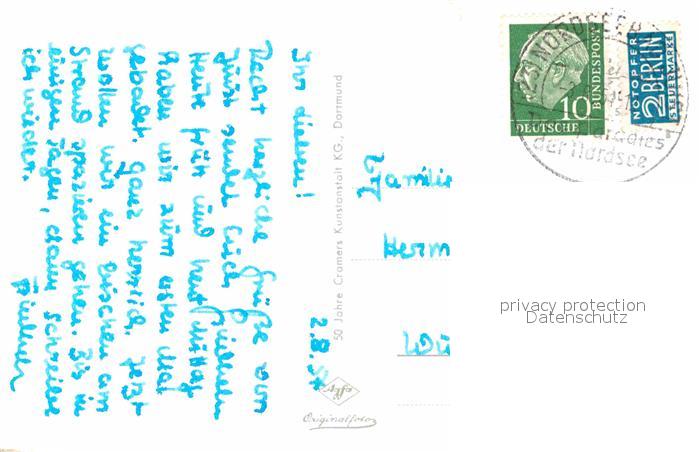 2.8.54
Ihr Lieben!
Recht herzliche Grüße von
Juist sendet Euch
Heute früh und heut Mittag
haben wir zum ersten Mal
gebadet. Ganz herrlich. Jetzt
wollen wir ein bischen am
Strand spazieren gehen. Bis in
einigen Tagen, dann schreibe
ich wieder.
50 Jahre Cramers Kunstanstalt KG., Dortmund
Agfa
Originalfoto
Familie
Herm
Wü
10
DEUTSCHE
BUNDESPOST
NOTOPFER
2 BERLIN
STEUERMARKE
NORDSEE
der Nordsee
privacy protection
Datenschutz